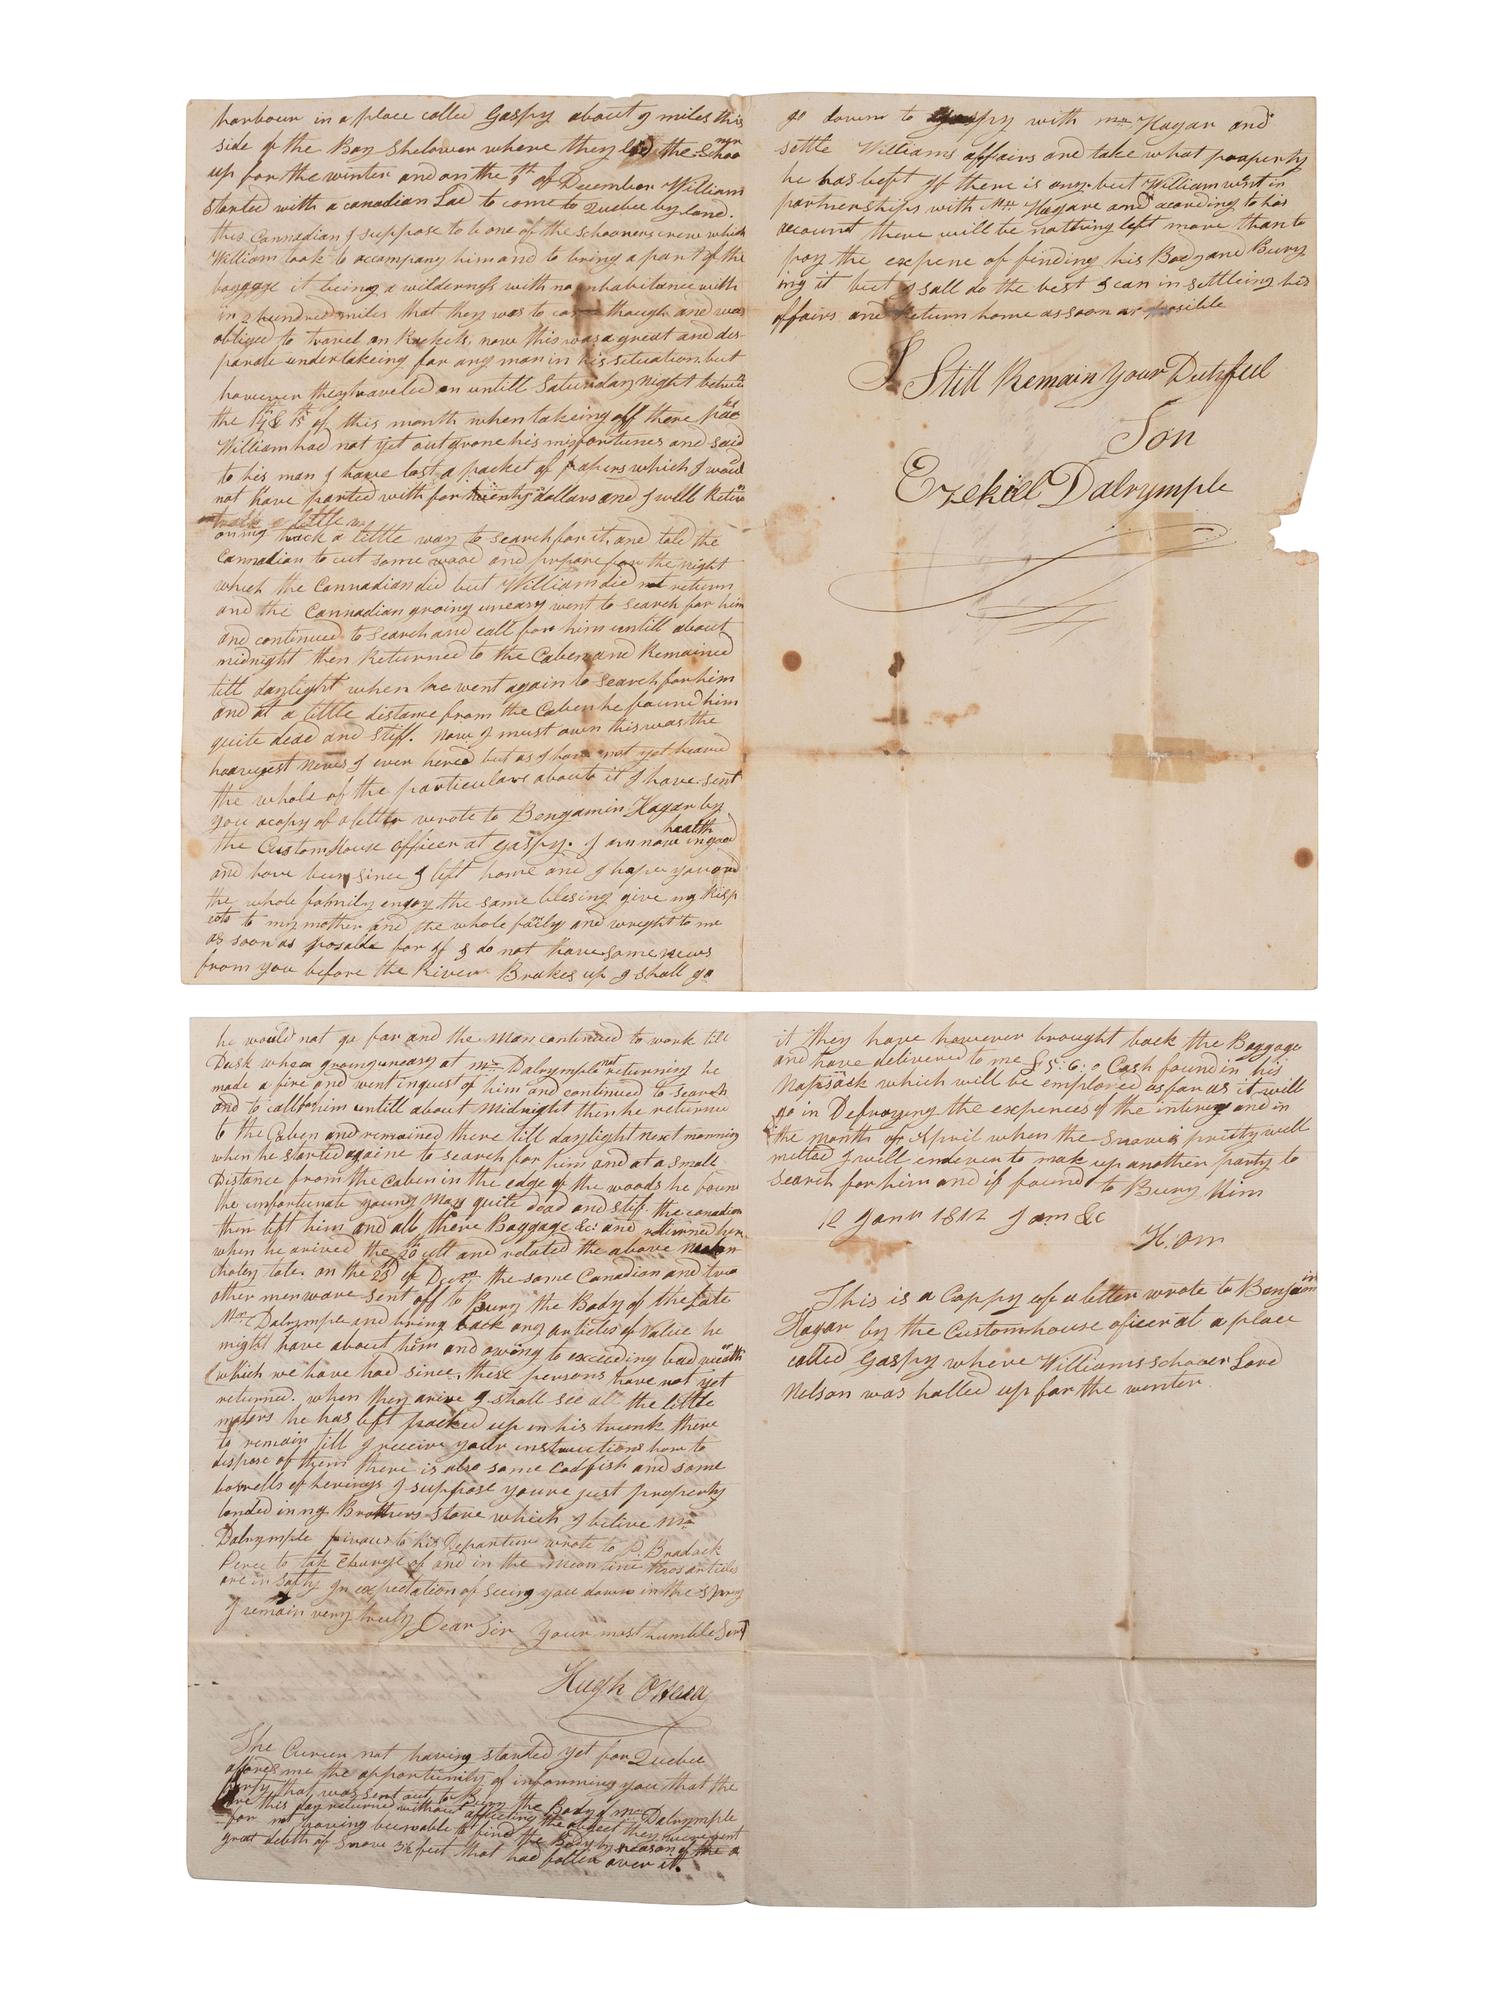 harbour in a place called Gaspy about 9 miles this
side of the Bay Shelower where they led the Schoo
ner
up for the winter and on the 9th of December William
started with a canadian Lad to come to Quebec by land.
this Cannadian I suppose to be one of the schooners crew which
William took to accompany him and to bring a part of the
baggage it being a wilderness with no inhabitance with
in 2 hundred miles that they was to come though and was
obliged to travel on Rackets, now this was a great and des-
parate undertakeing for any man in his situation, but
however they traveled on untill Saturday night between
the 14th & 15th of this month when takeing off there pac
ks
William had not yet outgrone his misfortunes and said
to his man I have lost a packet of papers which I would
not have parted with for twenty dollars and I will Return
back a little way to search for it, and told the
Cannadian to cut some wood and prepare for the night
which the Cannadian did but William did not return
and the Cannadian groing uneasy went to search for him
and continued to search and call for him untill about
midnight then Returned to the Caben and Remained
till daylight when he went again to search for him
and at a little distance from the Caben he found him
quite dead and stiff. now I must own this was the
heaviest news I ever hered but as I have not yet heared
the whole of the particulars about it I have sent
you a copy of a letter wrote to Bengamin Hagar by
the Custom House officer at Gaspy. I am now in good
health
and have been since I left home and I hope you and
the whole family enjoy the same blesing give my Resp
ects to my mother and the whole faily and wreght to me
as soon as posable for if I do not have some news
from you before the River Brakes up I shall go
go down to Gaspy with Mr Hagar and
settle Williams affairs and take what property
he has left if there is any but William went in
partnerships with Mr Hagare and acording to his
account there will be nothing left more than to
pay the expene of finding his Body and Bury
ing it but I sall do the best I can in settleing his
affairs and Return home as soon as possible
I Still Remain Your Dutyfull
Son
Ezekiel Dalrymple
he would not go far and the Man continued to work till
Dusk when groing uneasy at Mr Dalrymple not returning he
made a fire and went inquest of him and continued to search
and to call for him untill about Midnight then he returned
to the Caben and remained there till daylight next morning
when he started againe to search for him and at a small
Distance from the Caben in the edge of the woods he foun
the unfortunate young Man quite dead and stif. the canadian
then left him and all there Baggage &c: and returned here
when he arived the 20th ult and related the above Melan
choley tale. on the 23 of Decm the same Canadian and two
other men wave sent off to Bury the Body of the Late
Mr Dalrymple and bring back any articles of Value he
might have about him and owing to exceeding bad weath
er
(which we have had since, these persons have not yet
returned. when they arive I shall see all the little
maters he has left packed up in his trunk there
to remain till I receive your instructions how to
dispose of them there is also some Codfish and some
barrells of herings I suppose youre just property
landed in my Brothers Store which I belive Mr
Dalrymple pirvous to his Departure wrote to P. Bradock
Perce to tak Charege of and in the Mean time thos articles
are in safty In expectation of seeing you down in the spring
I remain very truly Dear Sir Your most humble Servt
Hugh OHara
The Curier not having started yet for Quebec
afords me the opportunity of informing you that the
party that was sent out to Bury the Body of Mr Dalrymple
are this day returned without affecting the object they were sent
for not having been able to find the Body by reason of the
great debth of Snow 3½ feet that had fallen over it.
it they have however brought back the Baggage
and have delivered to me £5:6:0 Cash found in his
Napsack which will be employed as far as it will
go in Defraying the expences of the intering and in
the month of April when the Snow is pritty well
melted I will endever to mak up another party to
search for him and if found to Bury him
12 Janu 1812 I am &c
H. OHr
This is a Coppy of a letter wrote to Benjamin
Hagar by the Custom house oficer at a place
called Gaspy where Williams schooer Lord
Nelson was halled up for the wenter.